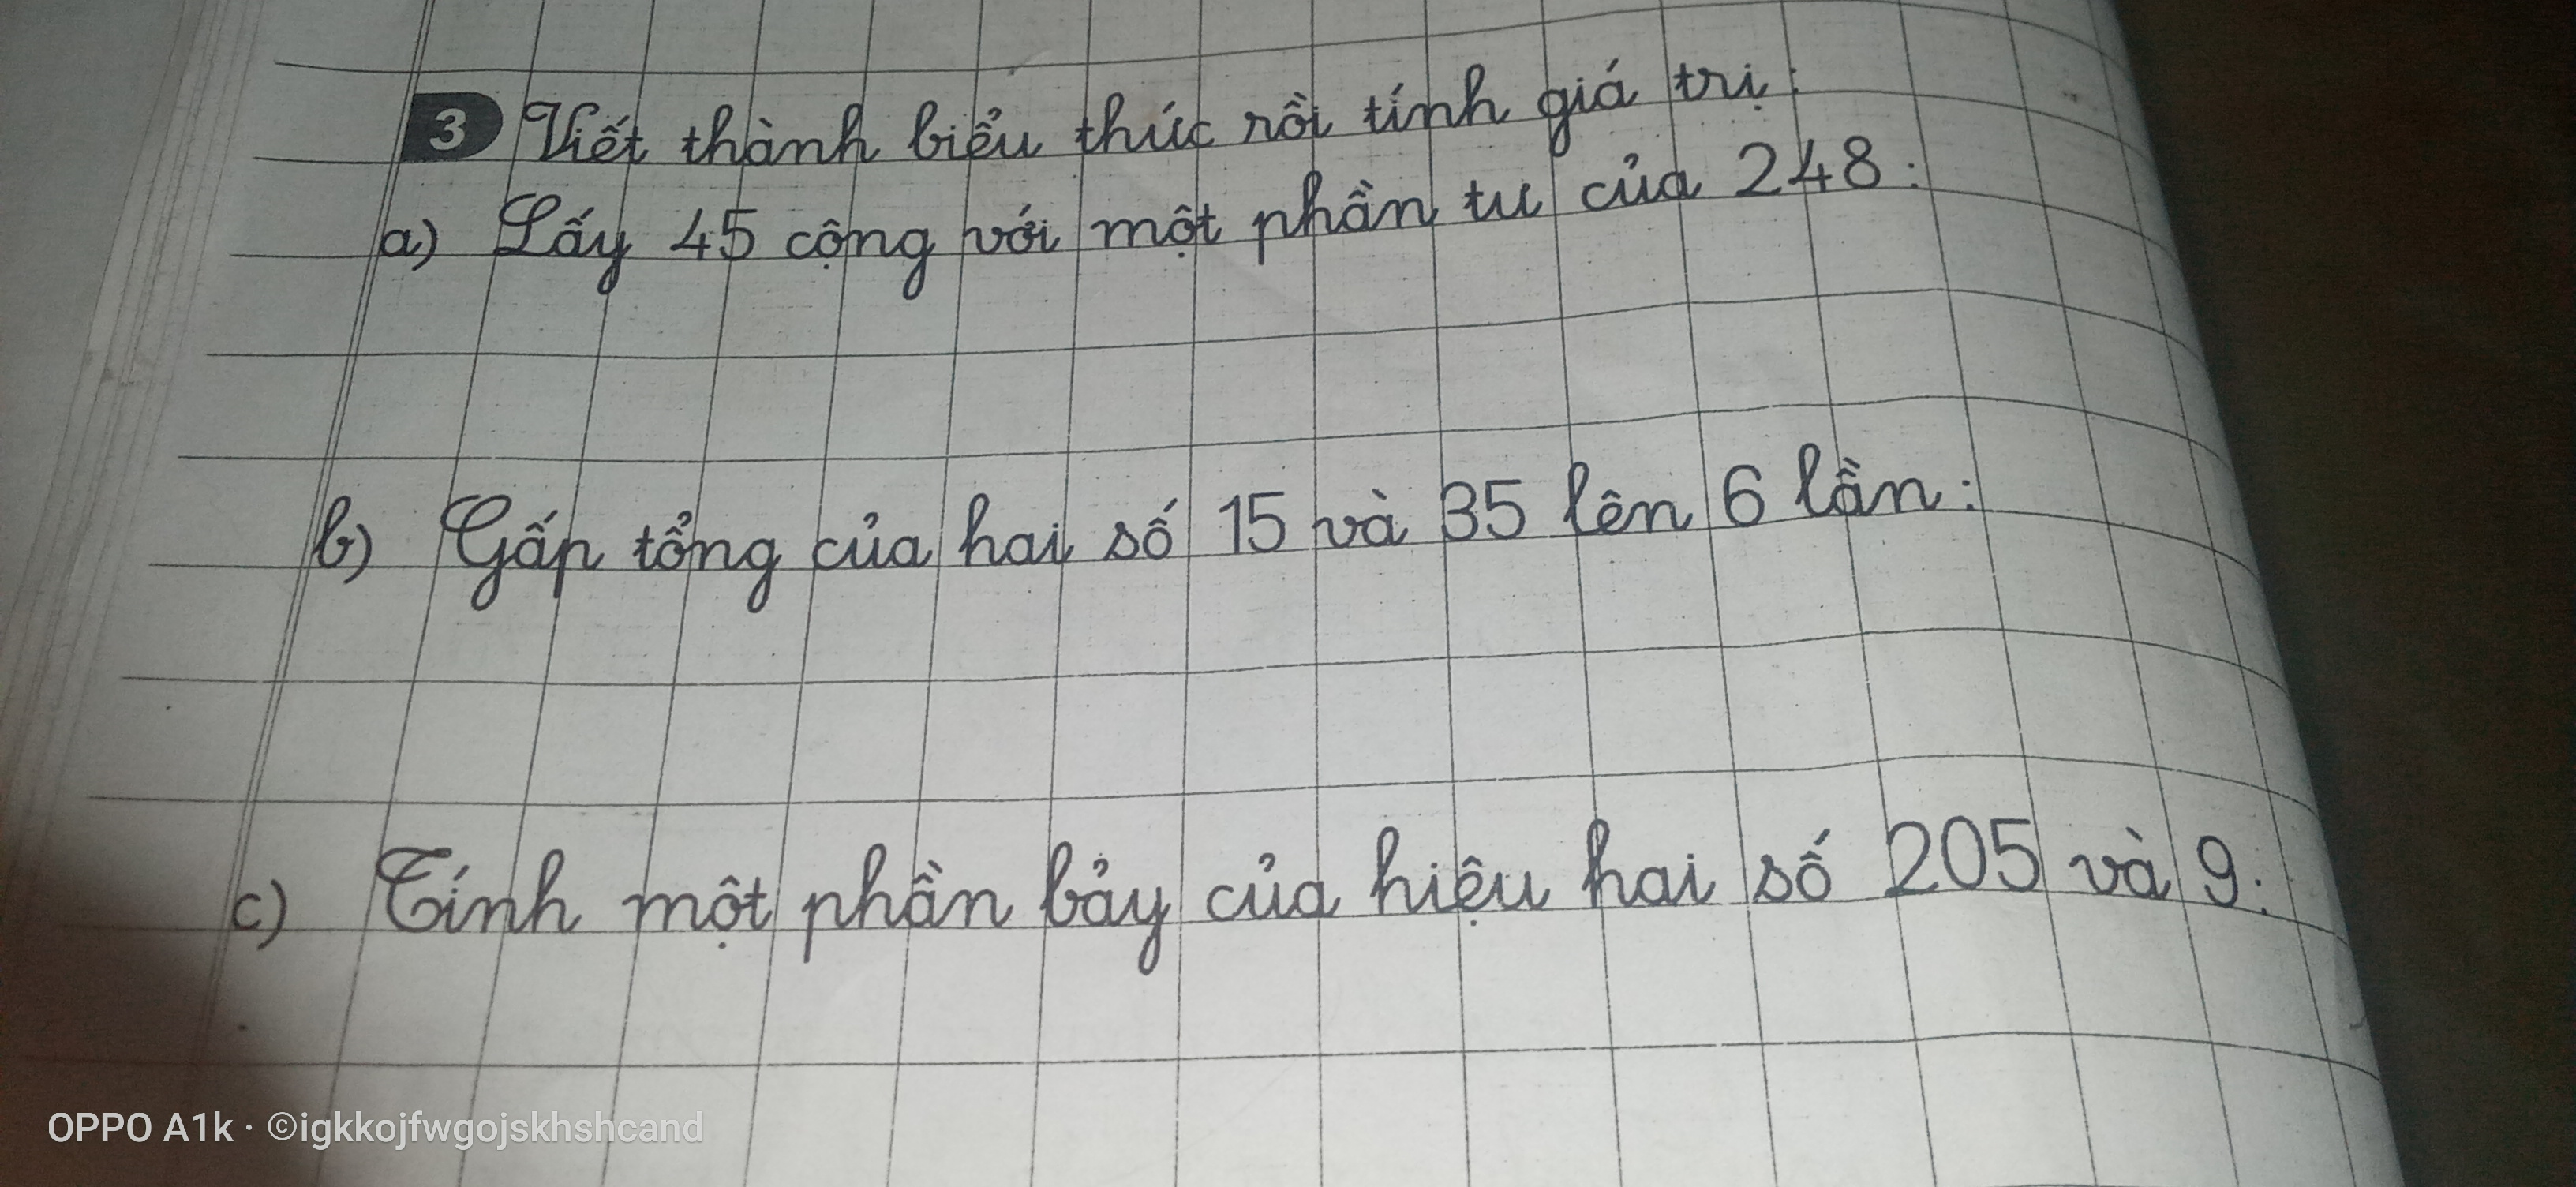 3 Viết thành biểu thức rồi tính giá trị:
a) Lấy 45 cộng với một phần tư của 248:
b) Gấp tổng của hai số 15 và 35 lên 6 lần:
c) Tính một phần bảy của hiệu hai số 205 và 9:
OPPO A1k · ©igkkojfwgojskhshcand